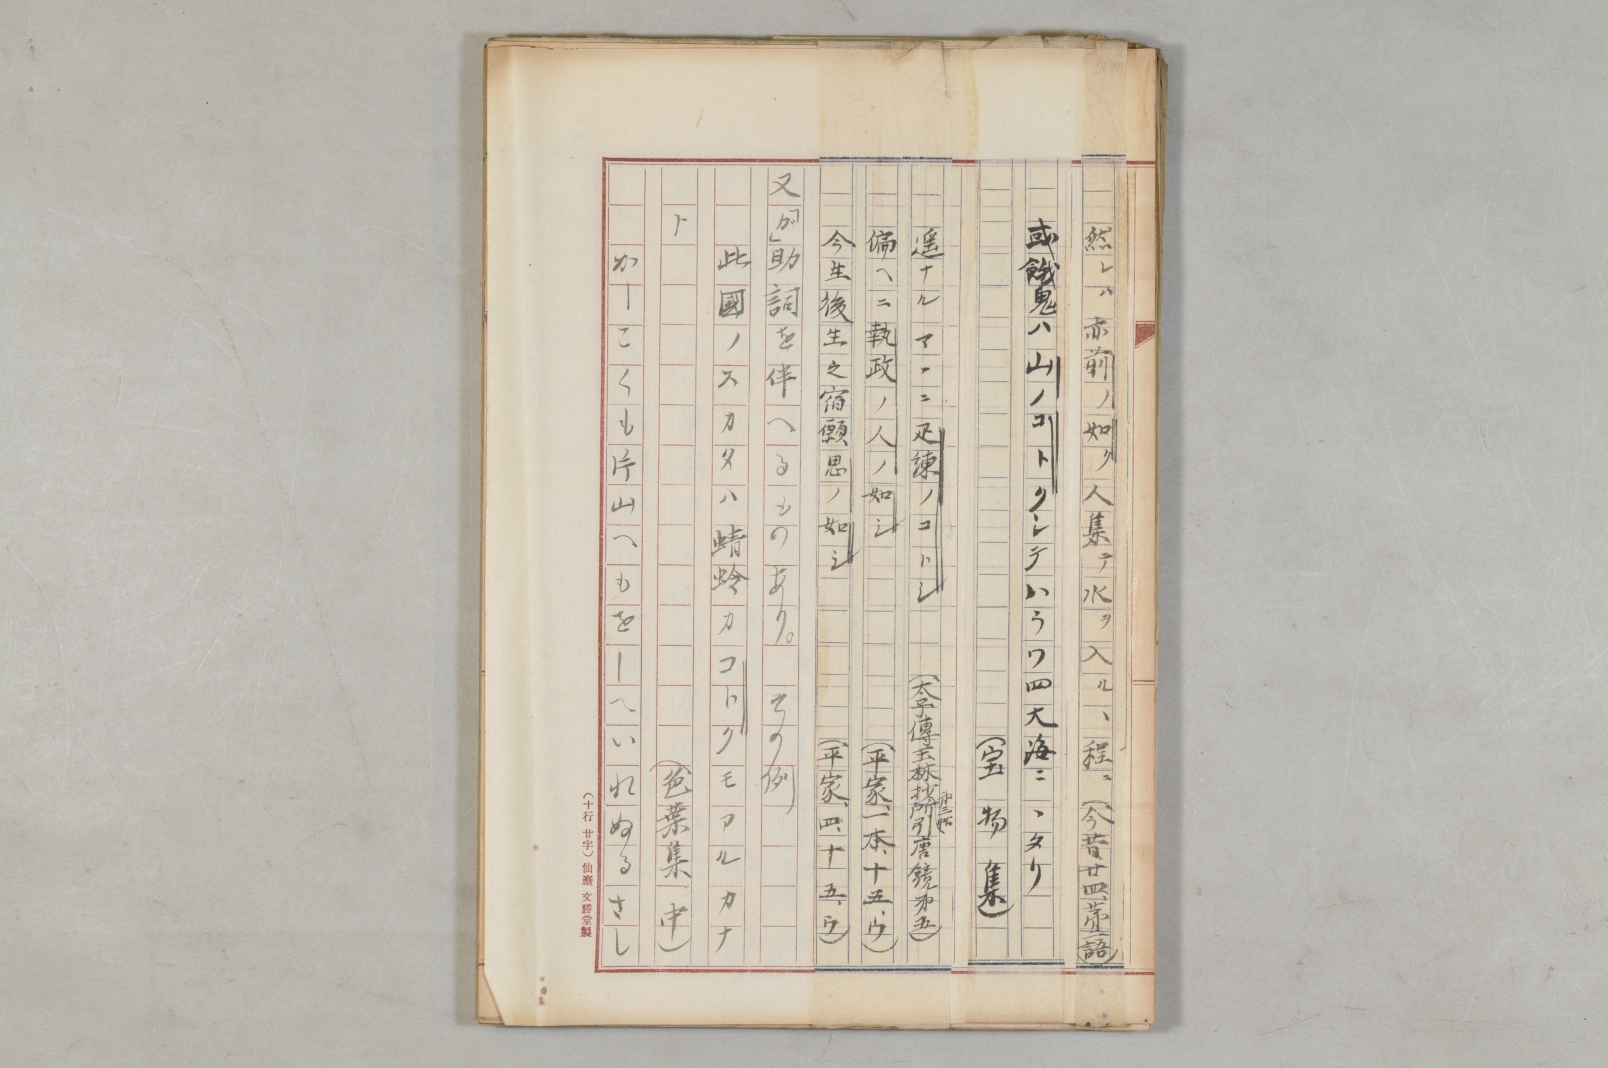 然レハ亦前ノ如ク人集テ水ヲ入ルヽ程ニ（今昔廿四、第二語）
或餓鬼ハ山ノコトクシテハラワ四大海ニヽタリ
（宝物集）
遥ナルマヽニ疋練ノコトシ（太子傳玉林抄所引唐鏡第五）
第三帖
偏ヘニ執政ノ人ノ如シ（平家、一本、十五、ウ）
今生後生之宿願思ノ如シ（平家、四、十五、ウ）
又「が」助詞を伴へるものあり。その例
此國ノスカタハ蜻蛉カコトクモアルカナ
ト（色葉集 中）
かしこくも片山へもをしへいれぬるさし
（十行 廿字）仙臺 文勝堂製